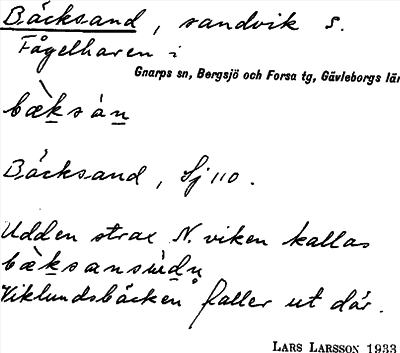 Bäcksand, sandvik S.
Fågelharen i
Gnarps sn, Bergsjö och Forsa tg, Gävleborgs län
bæ̀ksàn
Bäcksand, Sj 110.
Udden strax N. viken kallas
bæ̀ksansùdn
Viklundsbäcken faller ut där.
LARS LARSSON 1933